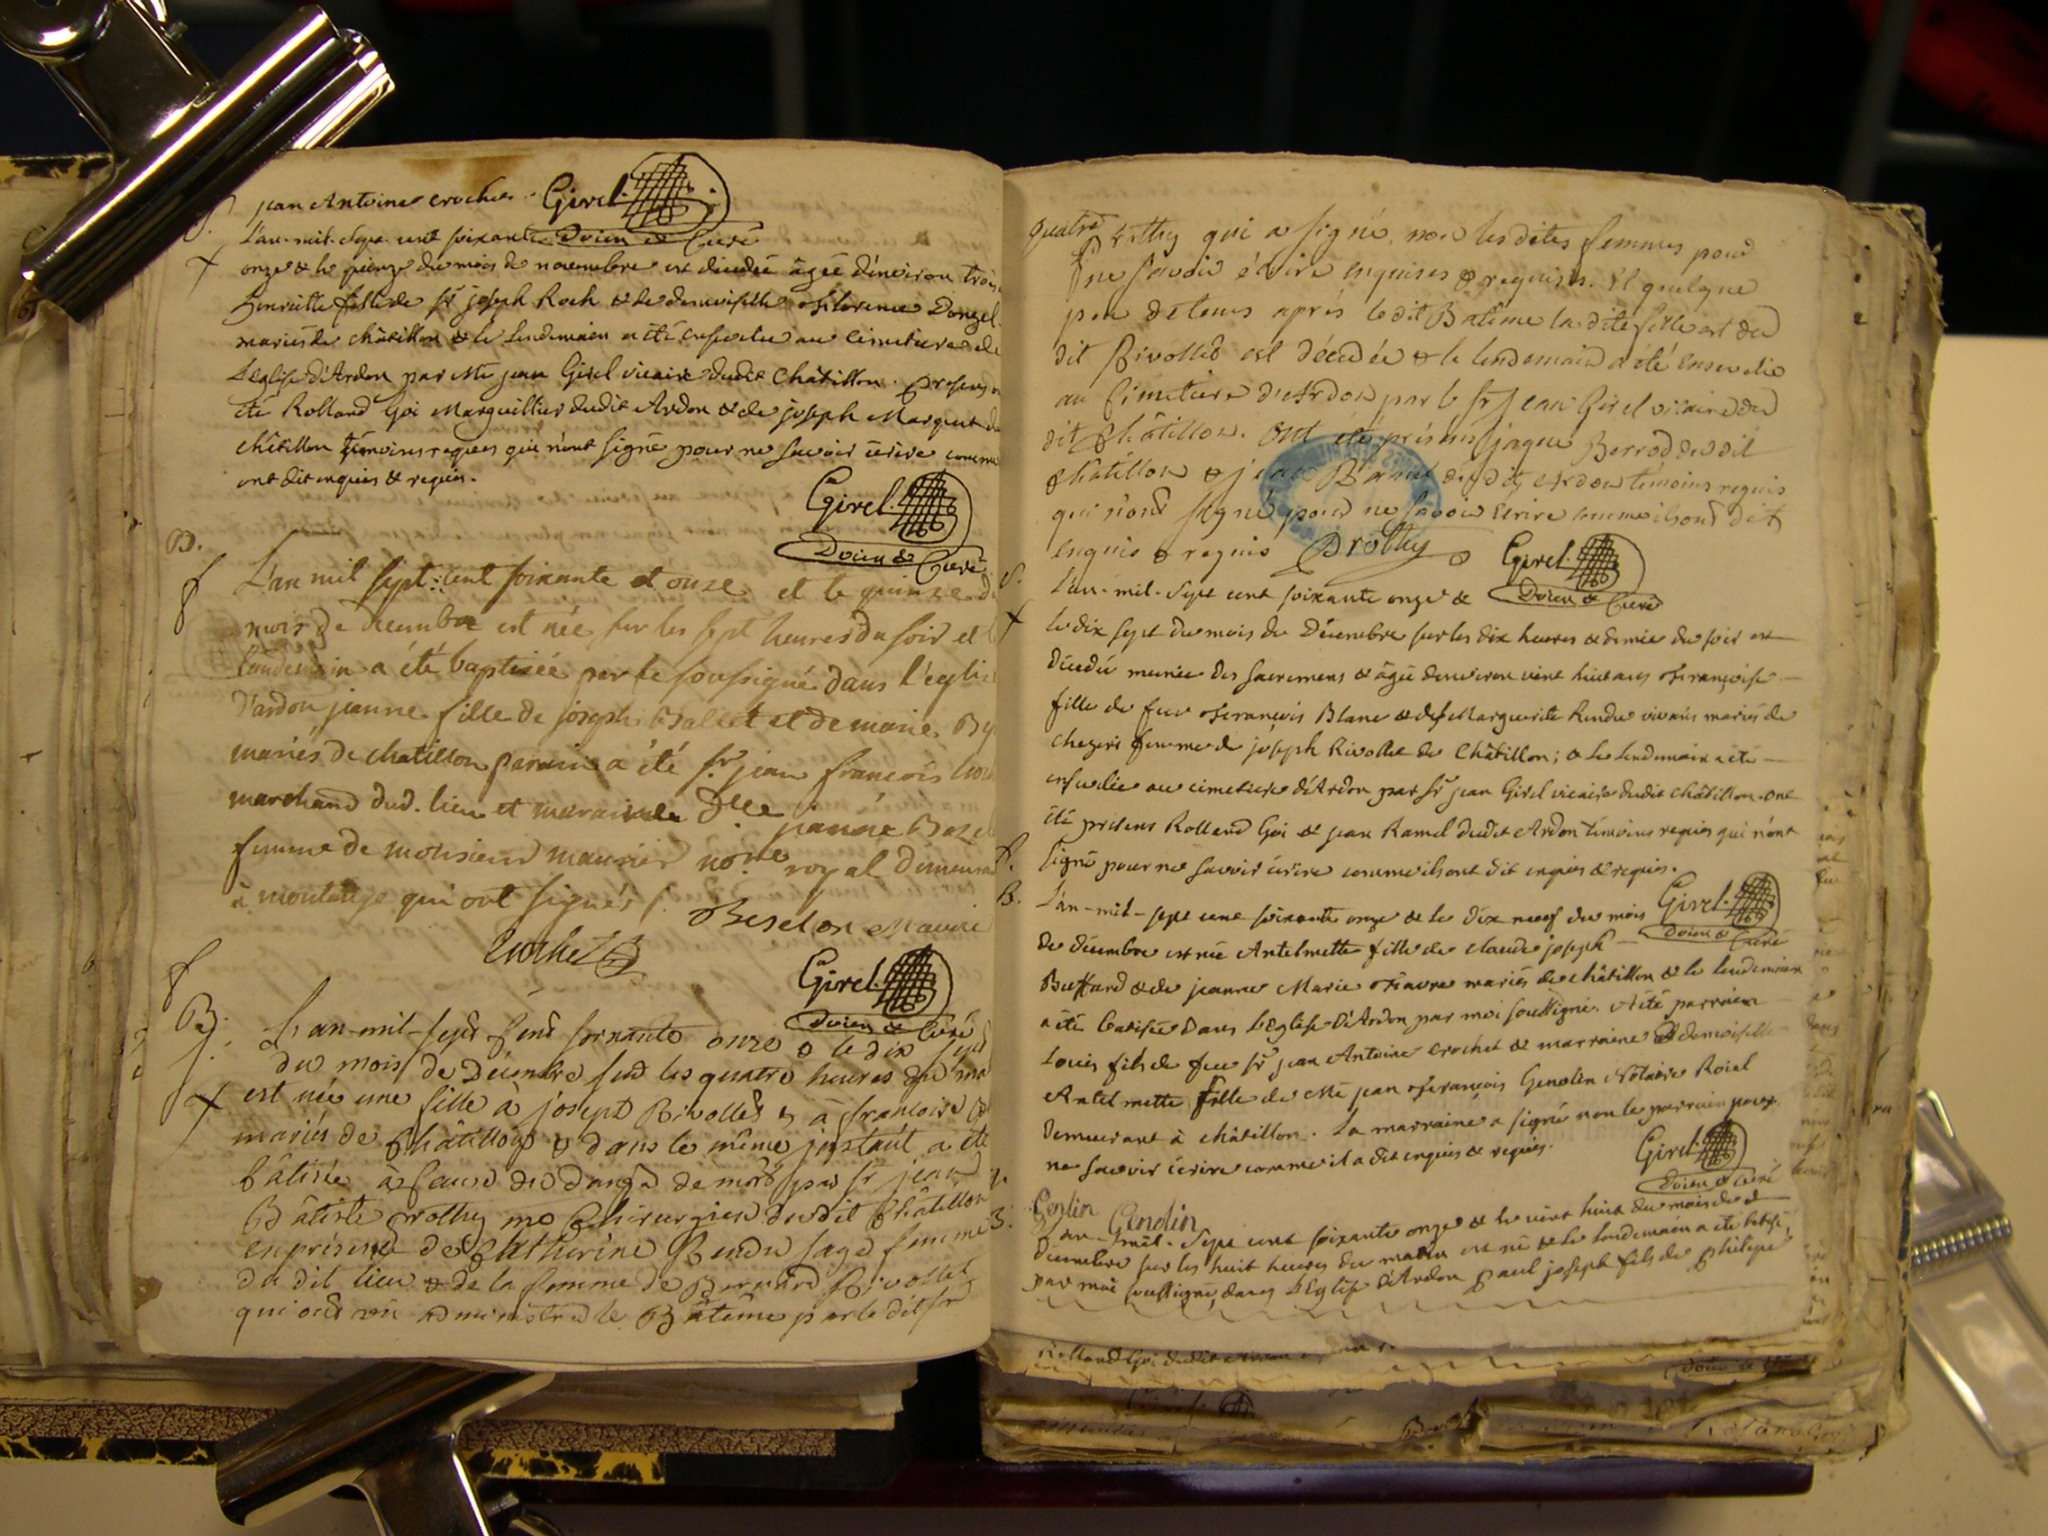 jean Antoine crochet. Girel.
S. L'an-mil-Sept-cent soixante Doien & Curé
onze & le du mois de novembre est décédée âgée d'environ trois
henriette fille de Sr joseph Roch & de demoiselle fflorence Donzel
mariés de châtillon & le lendemain a été ensevelie au cimetiere de
L'Eglise d'Ardon par Mre jean Girel vicaire dudit Châtillon. presens
été Rolland Goi Marguillier dudit Ardon & de joseph Marquet de
châtillon témoins requis qui n'ont signé pour ne savoir écrire comme
ont dit enquis & requis.
Girel.
Doien & Curé
B.
L'an mil sept: cent soixante et onze et le quinze
mois de decembre est née sur les sept heures du soir et
landemain a été baptisée par le soussigné dans l'église
D'ardon jeanne fille de joseph Ballet et de marie
mariés de chatillon parain a été sr. jean françois
marchand dud. lieu et maraine Dlle jeanne
femme de monsieur maurier nore royal demeurant
à qui ont signés /.
Beselon
Crochet
Girel.
Doien & Curé
B. L'an-mil-sept Cent soixante onze & le dix sept
du mois de Décembre sur les quatre heures du
est née une fille à josept Rivollet & à francoise
mariés de Châtillon & dans le même instant a été
bâtisée à Cause du dangé de mort par sr jean
Bâtiste Prothy me Chirurgien dudit Châtillon
en présence de Catherine Rendu sage femme
du dit lieu & de la femme de Bernard Rivollet
qui ont vû administrer le Batême par le dit sr
quatre Prothy qui a signé, non les dites femmes pour
ne savoir écrire enquises & requises. Et quelque
peu de tems après le dit Batême la dite fille est du
dit Rivollet est décédée & le lendemain a été ensevelie
au Cimetiere d'Ardon par le sr jean Girel vicaire du
dit Châtillon. Ont été présens jaque Berrod du dit
Châtillon & jean Ramel du dit Ardon témoins requis
qui n'ont signé pour ne savoir écrire comme ils ont dit
enquis & requis Prothy Girel.
S. L'an-mil-Sept cent soixante onze & Doien & Curé
le dix sept du mois de Décembre sur les dix heures & demie du soir est
décédée munie des sacremens & âgée d'environ vint huit ans ffrançoise
fille de feu ffrançois Blanc & de Marguerite Rendu vivans mariés de
chezeri femme de joseph Rivollet de Châtillon; & le lendemain a été
ensevelie au cimetiere d'Ardon par sr jean Girel vicaire dudit châtillon. ont
été présens Rolland Goi & jean Ramel dudit Ardon témoins requis qui n'ont
signé pour ne savoir écrire comme ils ont dit enquis & requis.
B. L'an-mil-sept cent soixante onze & le dix neuf du mois Girel.
de décembre est née Antelmette fille de claude joseph Doien & Curé
Buffard & de jeanne Marie ffavre mariés de châtillon & le lendemain
a été batisée dans l'Eglise d'Ardon par moi soussigné. A été parrain
Louis fils de feu sr jean Antoine crochet & marraine demoiselle
Antelmette fille de Me jean ffrançois Genolin Notaire Roial
demeurant à châtillon. La marraine a signé non le parrain pour
ne savoir écrire comme il a dit enquis & requis. Girel.
Doien & Curé
Genolin Genolin
B. L'an-mil-Sept cent soixante onze & le vint huit du mois de
décembre sur les huit heures du matin est né & le lendemain a été batisé
par moi soussigné dans l'Eglise d'Ardon paul joseph fils de philipe